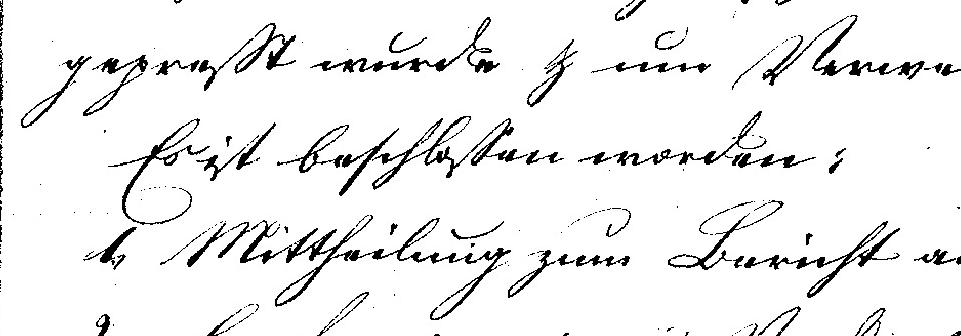 gepreßt wurde um Verwe
Es ist beschlossen worden:
1, Mittheilung zum Bericht a